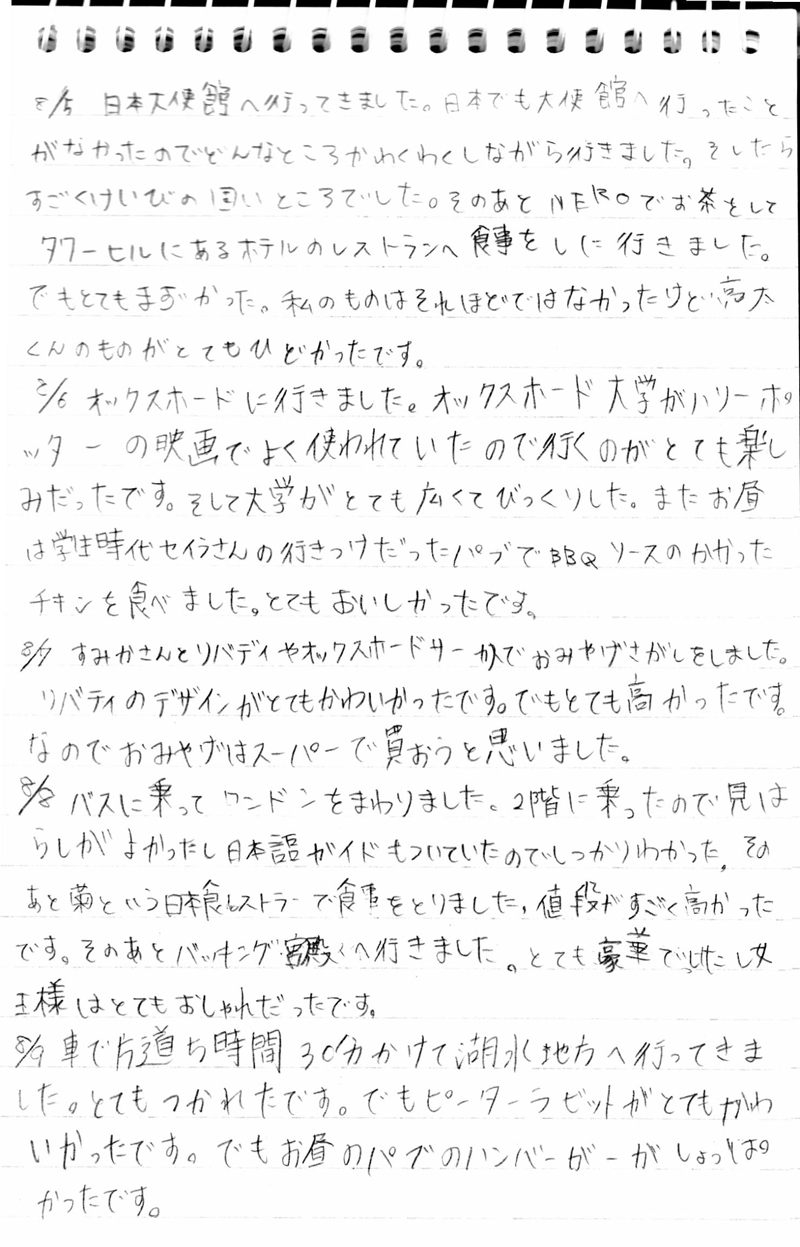 8/5 日本大使館へ行ってきました。日本でも大使館へ行ったこと
がなかったのでどんなところかわくわくしながら行きました。そしたら
すごくけいびの固いところでした。そのあとNEROでお茶をして
タワーヒルにあるホテルのレストランへ食事をしに行きました。
でもとてもまずかった。私のものはそれほどではなかったけど高太
くんのものがとてもひどかったです。
8/6 オックスホードに行きました。オックスホード大学がハリーポ
ッターの映画でよく使われていたので行くのがとても楽し
みだったです。そして大学がとても広くてびっくりした。またお昼
は学生時代セイラさんの行きつけだったパブでBBQソースのかかった
チキンを食べました。とてもおいしかったです。
8/7 すみかさんとリバティやオックスホードサーカスでおみやげさがしをしました。
リバティのデザインがとてもかわいかったです。でもとても高かったです。
なのでおみやげはスーパーで買おうと思いました。
8/8 バスに乗ってロンドンをまわりました。2階に乗ったので見は
らしがよかったし日本語ガイドもついていたのでしっかりわかった。その
あと菊という日本食レストラーで食事をとりました。値段がすごく高かった
です。そのあとバッキング宮殿へ行きました。とても豪華でしたし女
王様はとてもおしゃれだったです。
8/9 車で片道5時間30分かけて湖水地方へ行ってきま
した。とてもつかれたです。でもピーターラビットがとてもかわ
いかったです。でもお昼のパブのハンバーガーがしょっぱ
かったです。